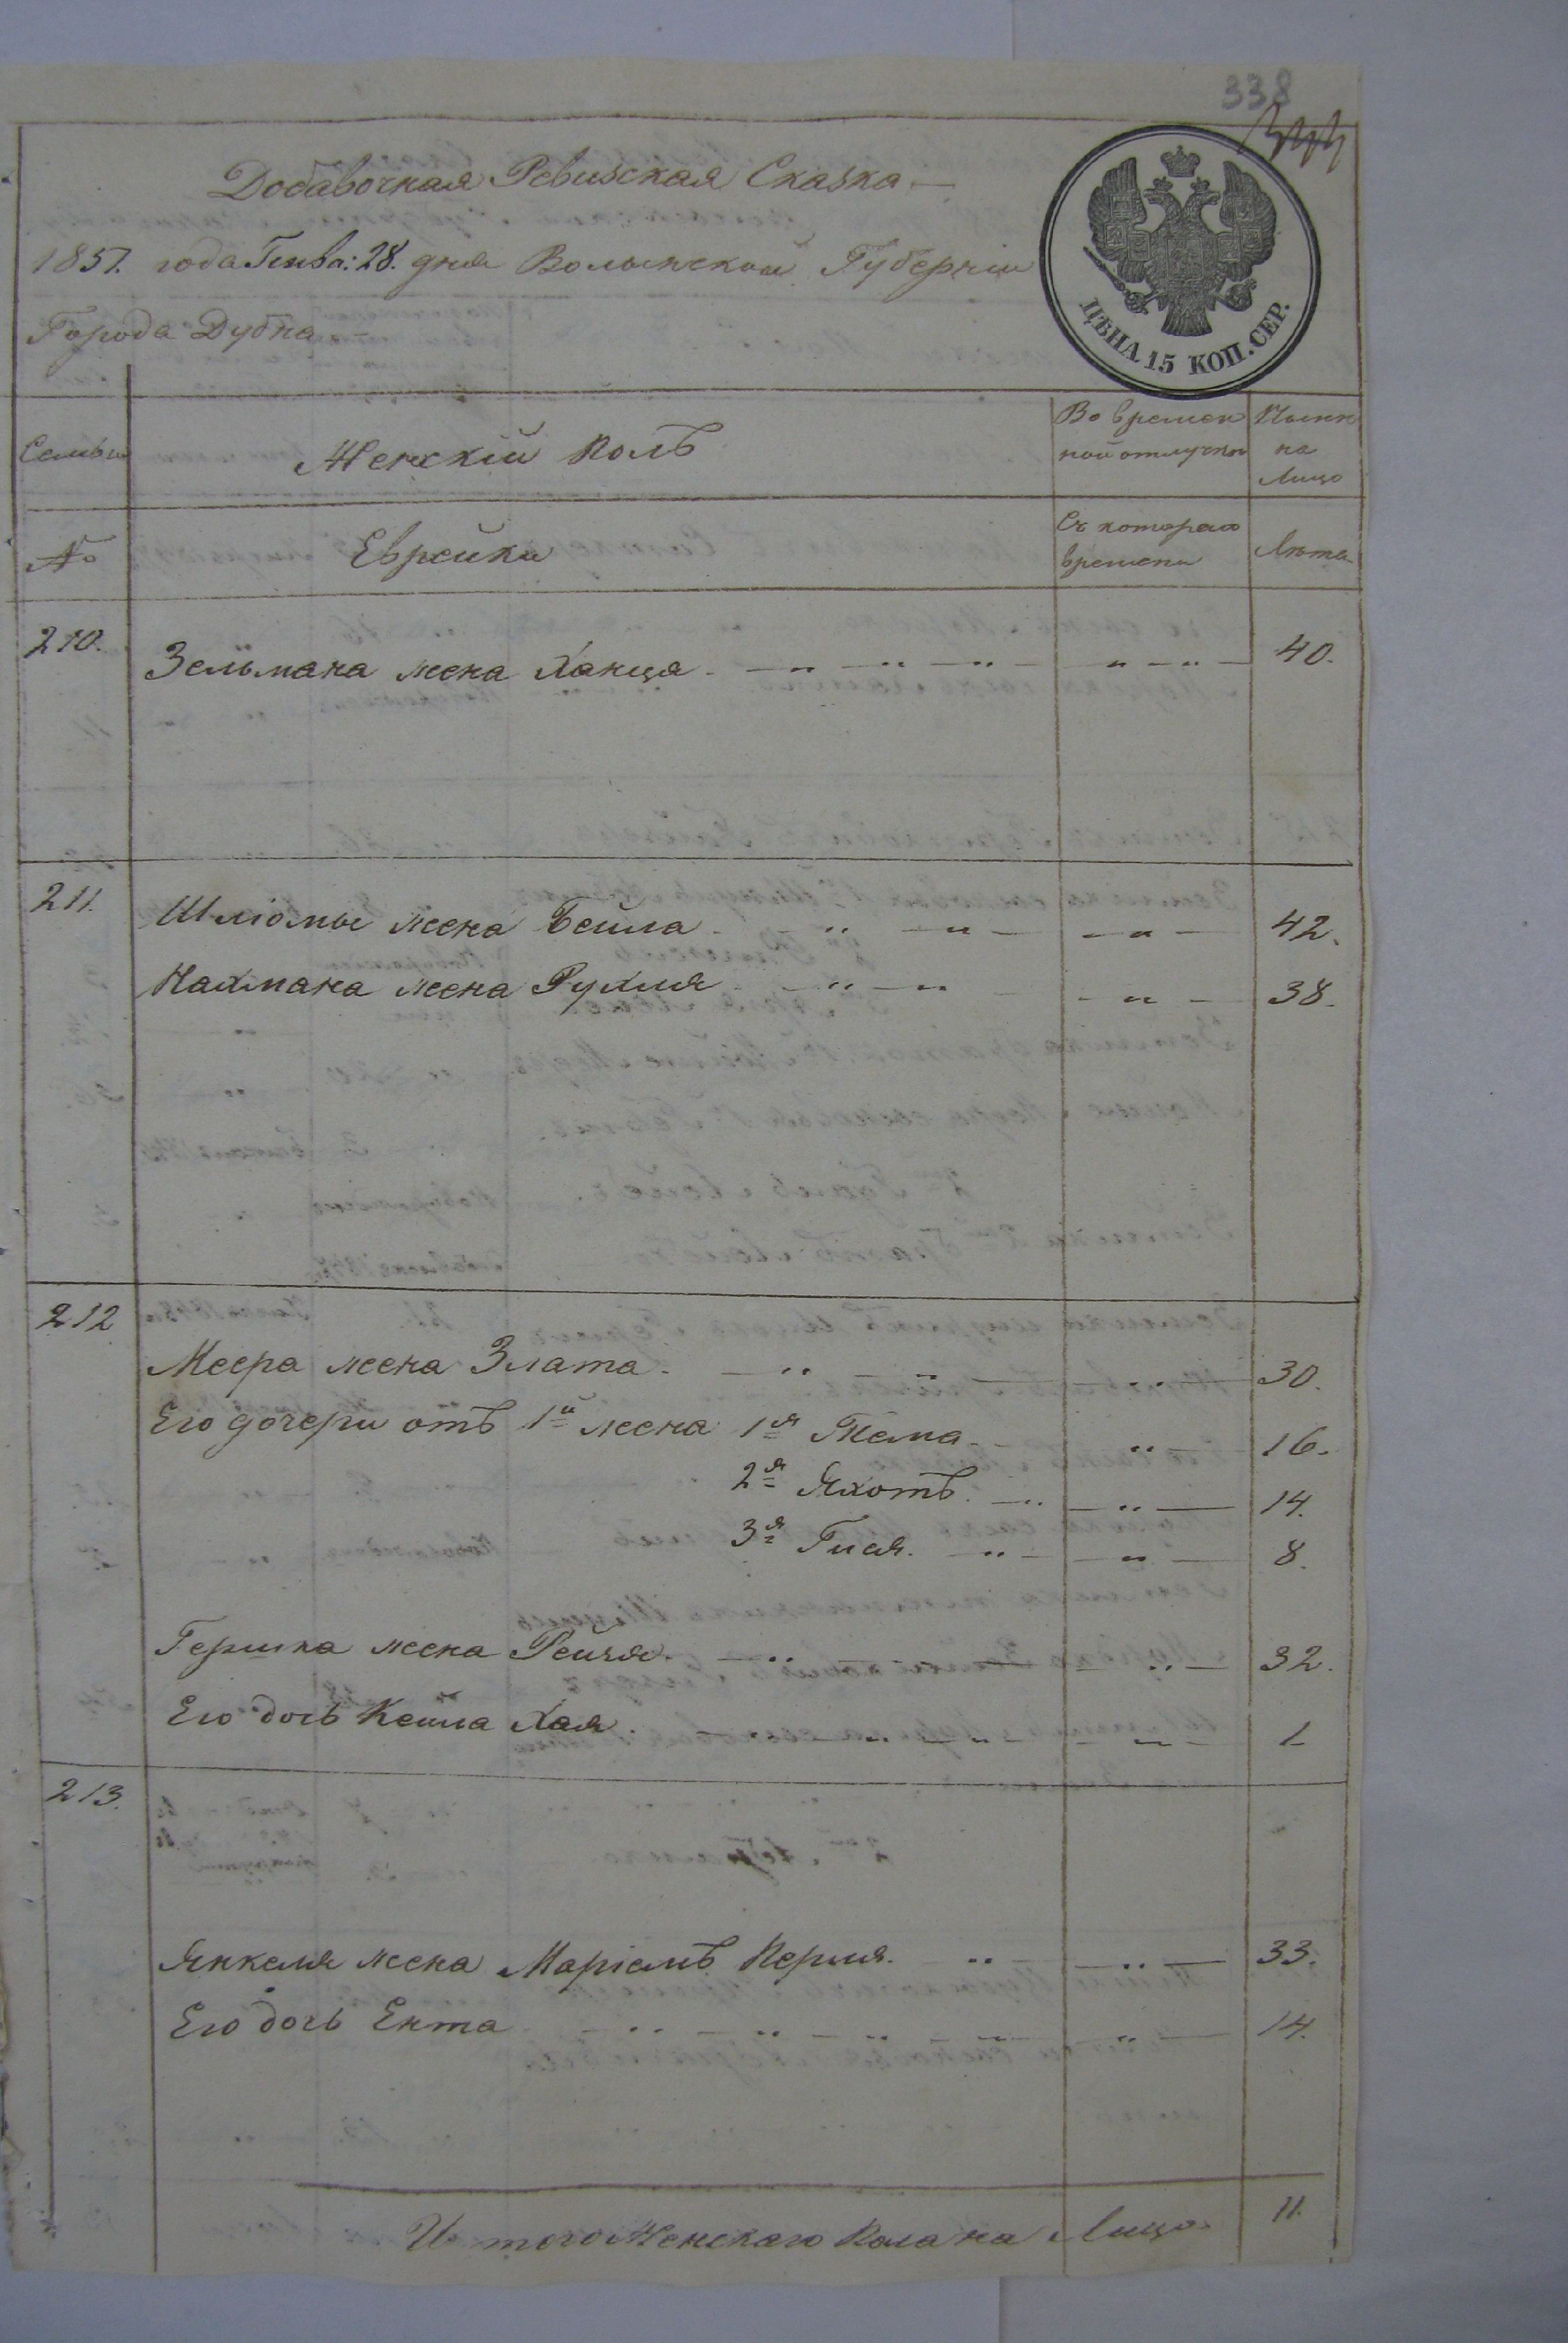 338
Добавочная Ревизская Сказка
1857. года Генва: 28. дня Волынской Губерніи
Города Дубна
ЦѢНА 15 КОП. СЕР.
Семьи
Женскій полъ
Во времен
ной отлучки
Нынѣ
на
Лицо
№
Еврейки
Съ котораго
времени
Лѣта
210. Зельмана жена Ханця 40.
211. Шліомы жена Бейла 42.
Нахмана жена Рухля 38.
212 Меера жена Злата. 30.
Его дочери отъ 1й жены 1я Тема 16.
2я Яхотъ. 14.
3я Гися. 8.
Гершка жена Рейзя. 32.
Его дочь Кейла Хая. 1
213.
Янкеля жена Маріемъ Перля. 33.
Его дочь Ента 14.
И того Женскаго Пола на Лицо 11.